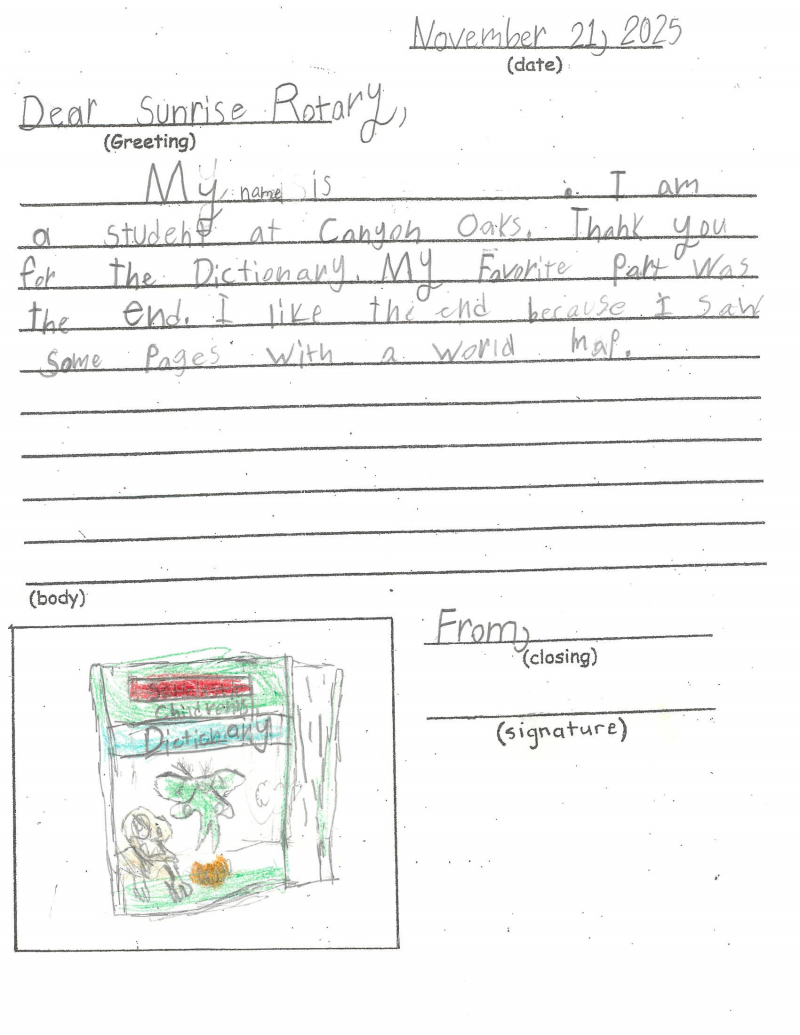 November 21, 2025
(date)
Dear Sunrise Rotary,
(Greeting)
My name is . I am
a student at Canyon Oaks. Thank you
for the Dictionary. My Favorite part was
the end. I like the end because I saw
some pages with a world map.
(body)
From,
(closing)
(signature)
Children's
Dictionary